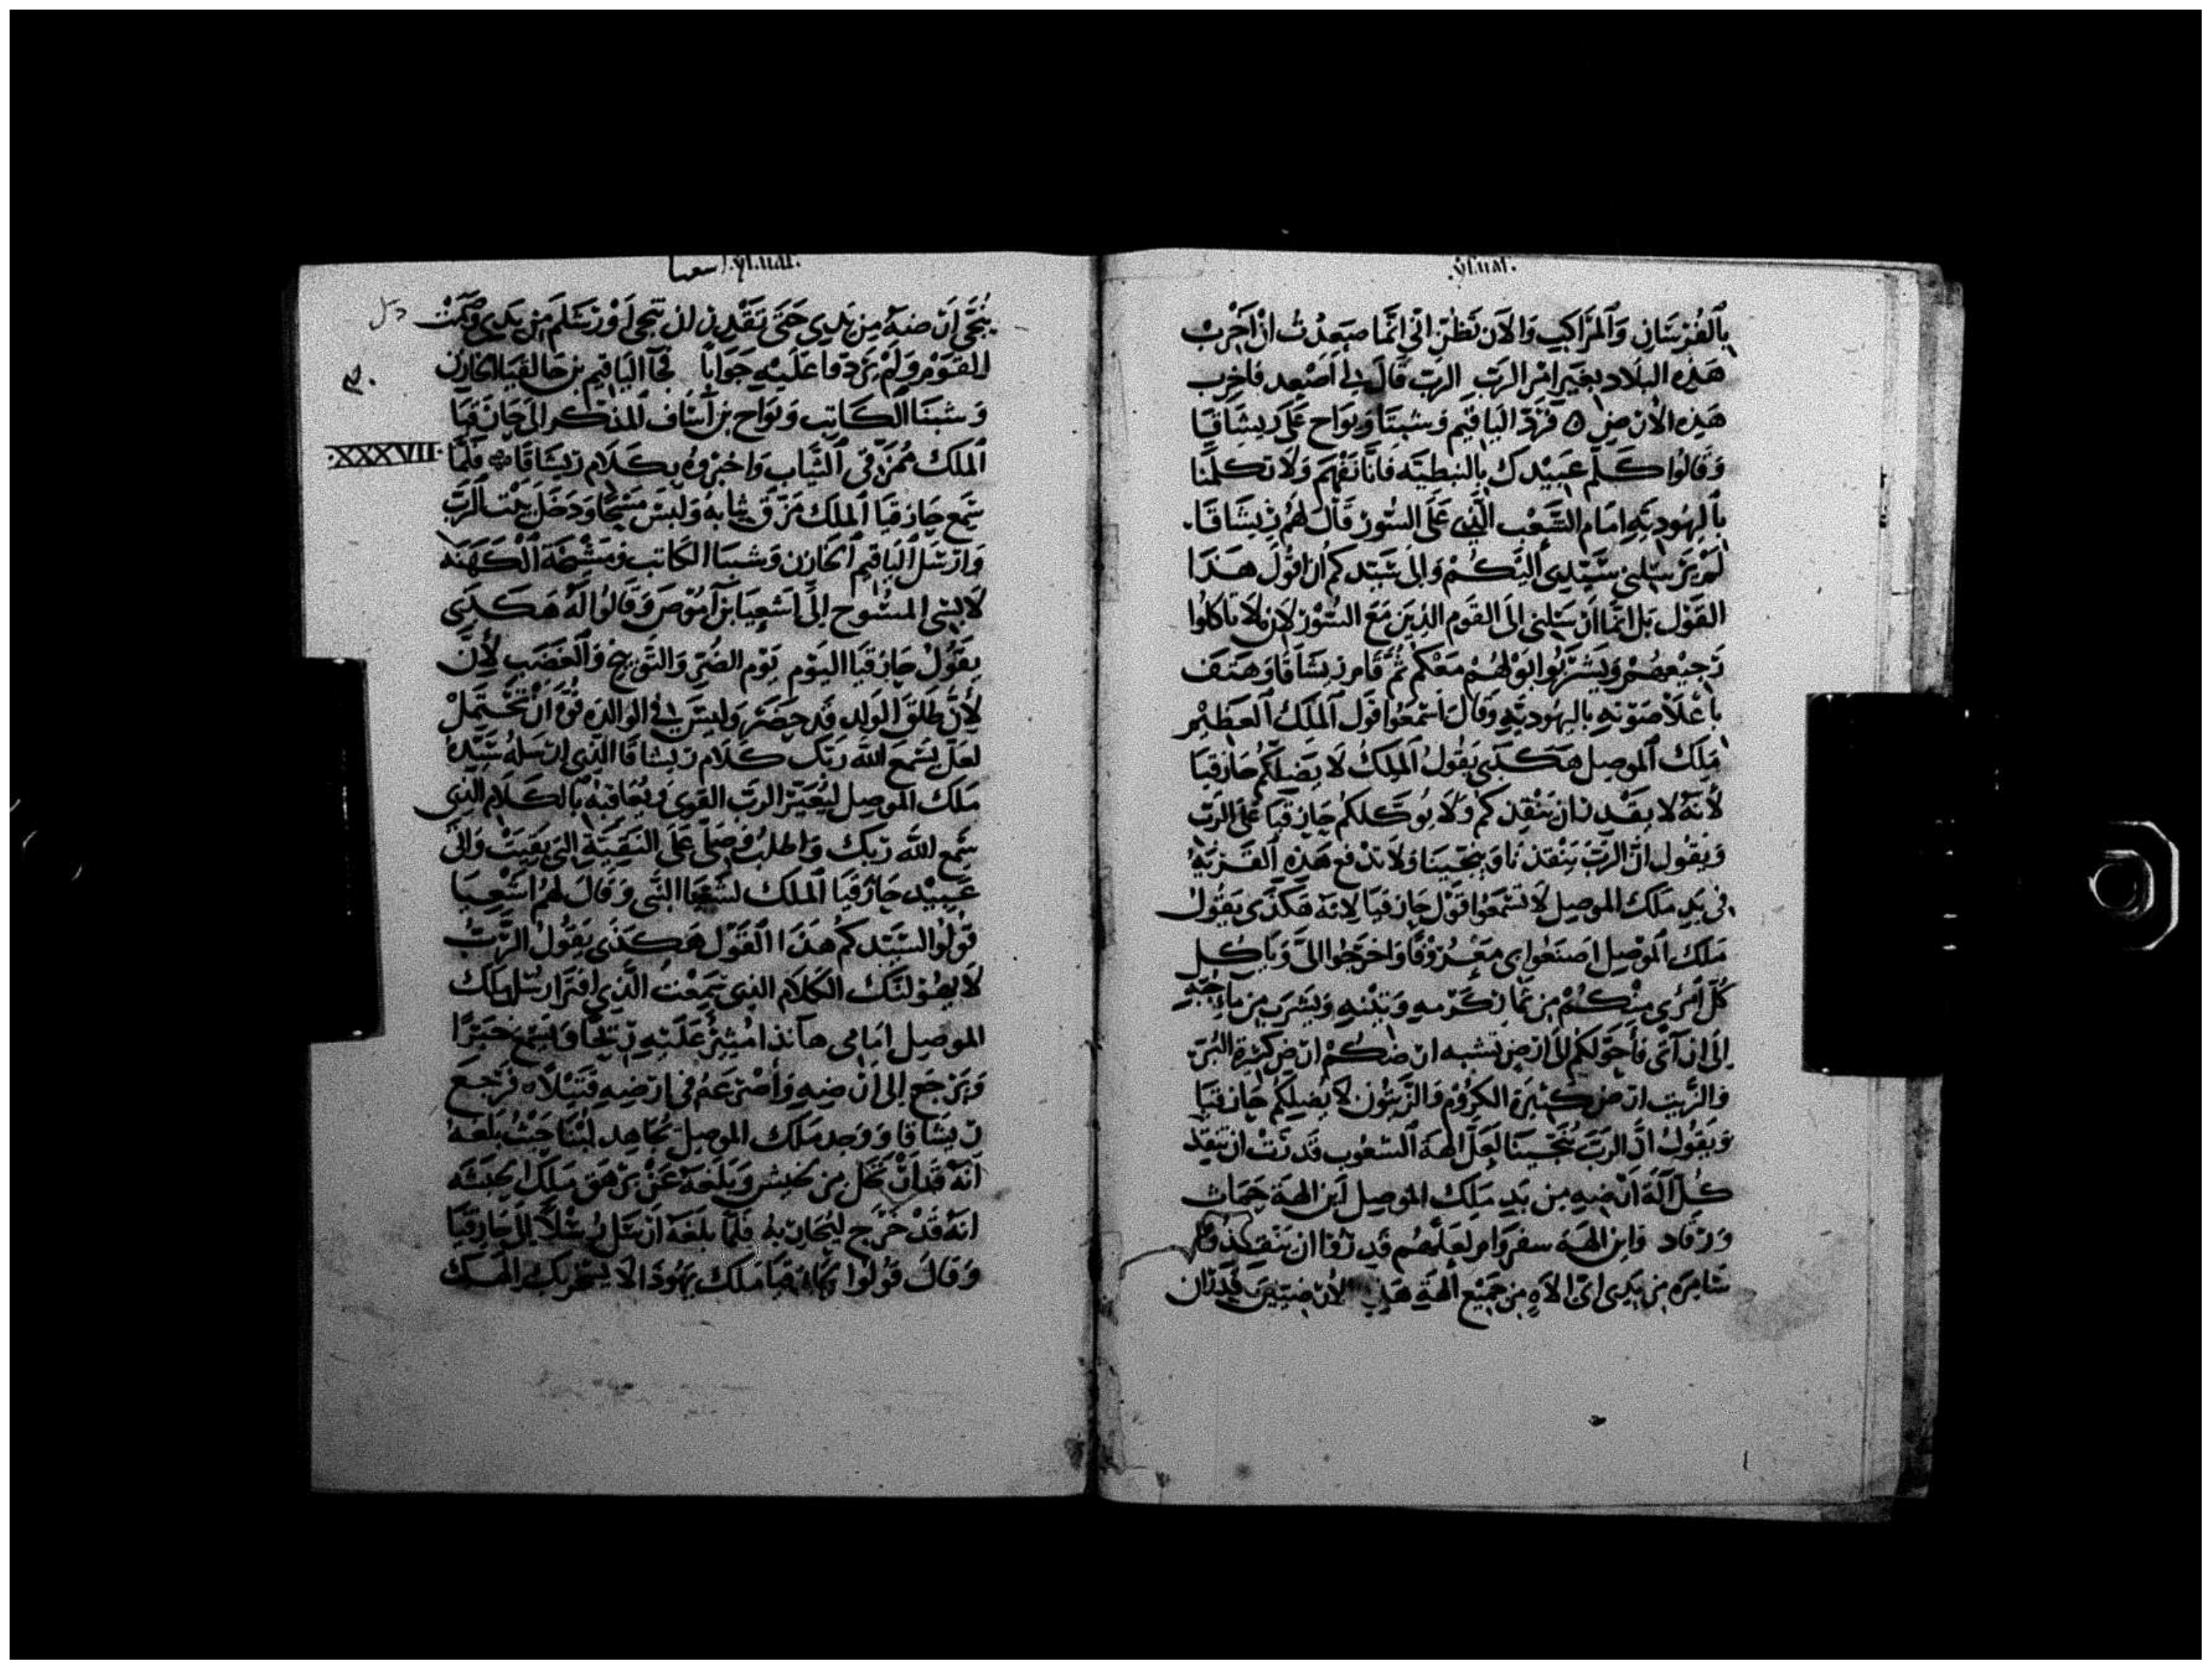 بالفرسان والمراكب والان تظن اني انما صعدت ان اخرب
هذه البلاد بغير امر الرب الرب قال لي اصعد فاخرب
هذه الارض فرد الياقيم وشبنا ويواح على ربشاقيا
وقالوا كلم عبيدك بالنبطيه فانا نفهم ولا تكلمنا
باليهوديه امام الشعب الذي على السور قال لهم ربشاقا
لم يرسلني سيدي اليكم والى سيدكم ان اقول هذا
القول بل انما ارسلني الى القوم الذين مع السور لان لا ياكلوا
رجيعهم ويشربوا بولهم معكم ثم قام ربشاقا وهتف
باعلا صوته باليهوديه وقال اسمعوا قول الملك العظيم
ملك الموصل هكذى يقول الملك لا يضلكم حازقيا
لانه لا يقدر ان ينقذكم ولا يوكلكم حازقيا على الرب
ويقول ان الرب ينقذنا وينجينا ولا تدفع هذه القريه
في يد ملك الموصل لا تسمعوا قول حازقيا لانه هكذى يقول
ملك الموصل اصنعوا بي معروفا واخرجوا الي وياكل
كل امرئ منكم من ثمار كرمه وتينه ويشرب من ماء جبه
الى ان اتي فاحولكم الى ارض تشبه ارضكم ارض كثيرة البر
والزيت ارض كثيرة الكروم والزيتون لا يضلكم حازقيا
ويقول ان الرب ينجينا لعل الهة الشعوب قدرت ان تنقذ
كل اله ارضه من يد ملك الموصل اين الهة حماث
ورفاد واين الهة سفروام لعلهم قدروا ان ينقذوا
شامره من يدي اي الاه من جميع الهة هذه الارضين قدر ان
اشعيا
ينجي ارضه من يدي حتى تقدر ان تنجي اورشلم من يدي وسكت
القوم ولم يردوا عليه جوابا فجا الياقيم بن حالقيا الخازن
وشبنا الكاتب ويواح بن اساف المذكر الى حازقيا
الملك ممزقي الثياب واخبروه بكلام ربشاقا فلما
XXXVII
سمع حازقيا الملك مزق ثيابه ولبس مسحا ودخل بيت الرب
وارسل الياقيم الخازن وشبنا الكاتب ومشيخة الكهنه
لابسي المسوح الى اشعيا بن اموص وقالوا له هكذى
يقول حازقيا اليوم يوم الضر والتوبيخ والغضب لان
لان طلق الولد قد حضر وليس في الوالده قوة ان تحتمل
لعل يسمع الله ربك كلام ربشاقا الذي ارسله سيده
ملك الموصل ليعير الرب القوي ويعاقبه بالكلام الذي
سمع الله ربك واطلب وصلي على البقية التي بقيت واتى
عبيد حازقيا الملك لشعيا النبي وقال لهم اشعيا
قولوا لسيدكم هذا القول هكذى يقول الرب
لا يهولنك الكلام الذي سمعت الذي افترا رسل ملك
الموصل امامي هانذا مثير عليه ريحا ويسمع خبرا
ويرجع الى ارضه واصرعه في ارضه قتيلا فرجع
ربشاقا ووجد ملك الموصل يجاهد لبنا حيث بلغه
انه قد رحل من لخيش وبلغه عن ترهق ملك الحبشه
انه قد خرج ليحاربه فلما بلغه ارسل رسلا الى حازقيا
وقال قولوا لحازقيا ملك يهوذا لا يغرنك الهك